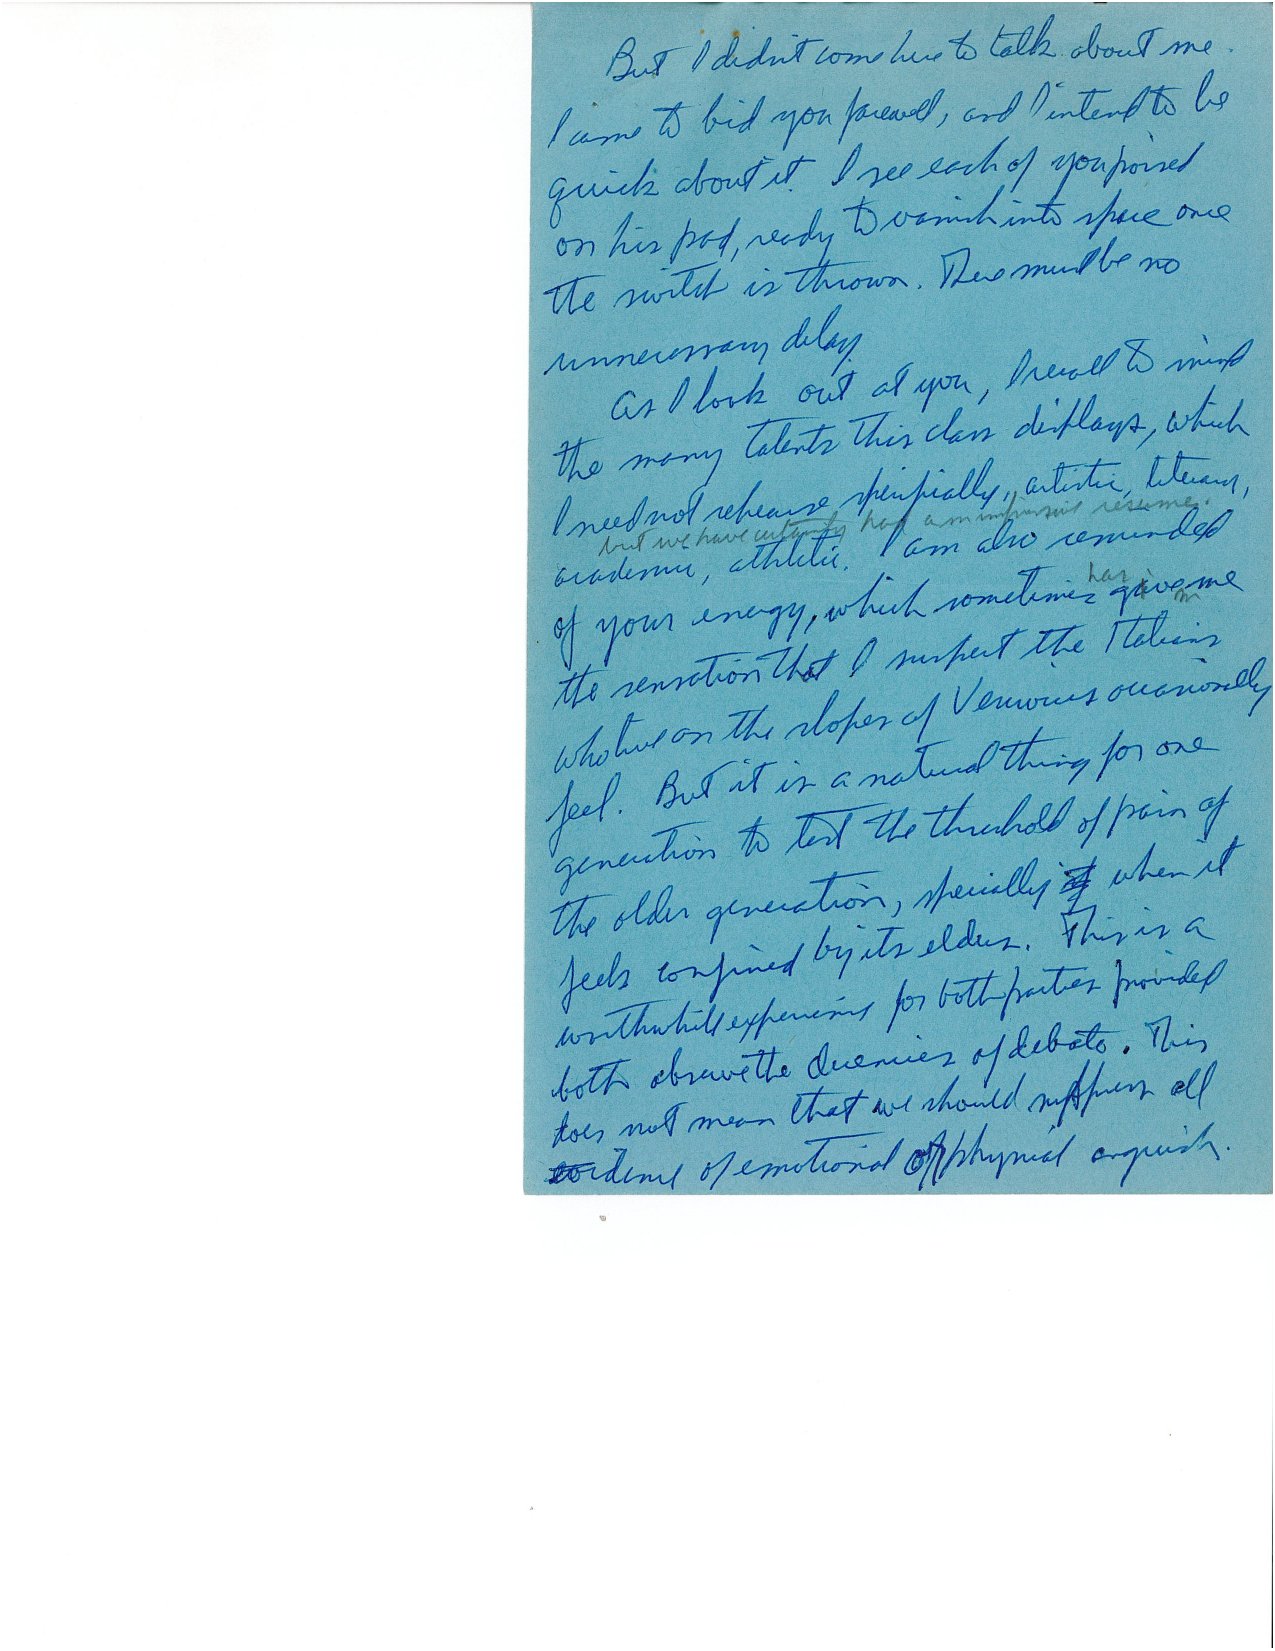 But I didn't come here to talk about me.
I came to bid you farewell, and I intend to be
quick about it. I see each of you poised
on his pad, ready to vanish into space once
the switch is thrown. There must be no
unnecessary delay.
As I look out at you, I recall to mind
the many talents this class displays, which
I need not rehearse specifically, artistic, literary,
but we have certainly had an impressive resume.
academic, athletic. I am also reminded
has
of your energy, which sometimes gave me
the sensation that I suspect the Italians
who live on the slopes of Vesuvius occasionally
feel. But it is a natural thing for one
generation to test the threshold of pain of
the older generation, specially if when it
feels confined by its elders. This is a
worthwhile experience for both parties provided
both observe the decencies of debate. This
does not mean that we should suppress all
evidence of emotional or physical anguish.